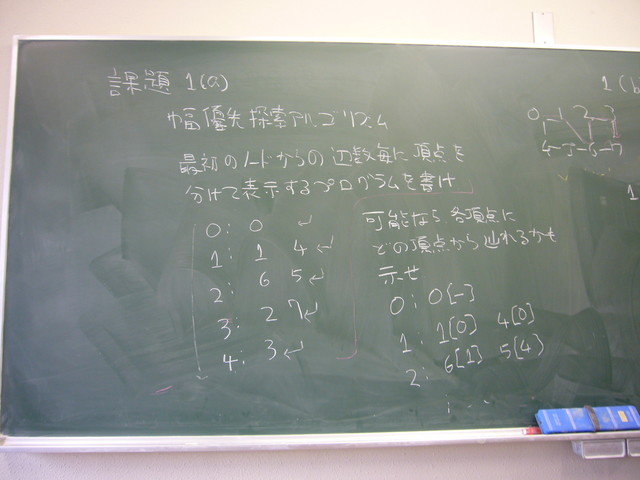 課題 1(a)
幅優先探索アルゴリズム
最初のノードからの辺数毎に頂点を
分けて表示するプログラムを書け
0: 0 ↵
1: 1 4 ↵
2: 6 5 ↵
3: 2 7 ↵
4: 3 ↵
可能なら各頂点に
どの頂点から辿れるかも
示せ
0: 0[-]
1: 1[0] 4[0]
2: 6[1] 5[4]
1(b
0-1 2-3
4-5-6-7
1